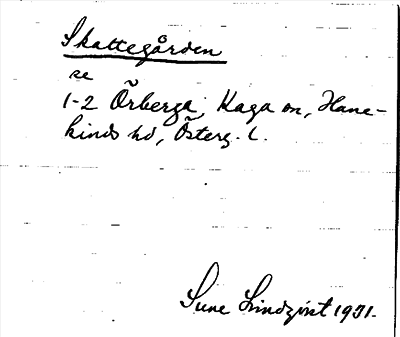 Skattegården
se
1-2 Örberga, Kaga sn, Hane-
kinds hd, Österg. l.
Sune Lindqvist 1931.